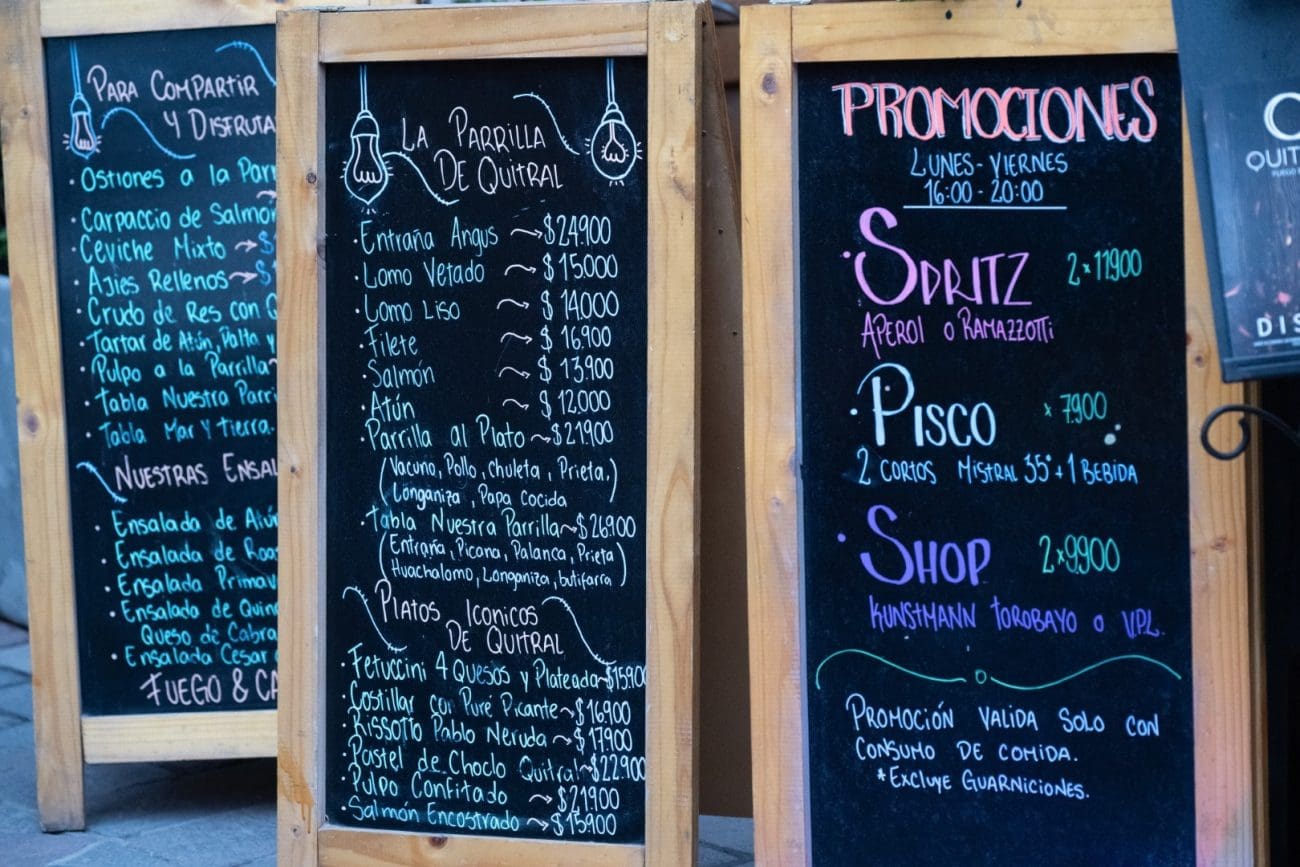 PARA COMPARTIR
Y DISFRUTA
· Ostiones a la Parr
· Carpaccio de Salmón
· Ceviche Mixto → $
· Ajies Rellenos → $
· Crudo de Res con
· Tartar de Atún, Palta y
· Pulpo a la Parrilla
· Tabla Nuestra Parri
· Tabla Mar y Tierra.
NUESTRAS ENSAL
· Ensalada de Atún
· Ensalada de
· Ensalada Primav
· Ensalada de Quin
Queso de Cabra
· Ensalada Cesar
FUEGO & CA
LA PARRILLA
DE QUITRAL
· Entraña Angus → $24.900
· Lomo Vetado → $15.000
· Lomo Liso → $14.000
· Filete → $16.900
· Salmón → $13.900
· Atún → $12.000
· Parrilla al Plato → $21.900
(Vacuno, Pollo, chuleta, Prieta,
Longaniza, Papa Cocida)
· Tabla Nuestra Parrilla → $26.900
(Entraña, Picana, Palanca, Prieta
Huachalomo, Longaniza, butifarra)
PLATOS ICONICOS
DE QUITRAL
· Fetuccini 4 Quesos y Plateada → $15.900
· Costillar con Puré Picante → $16.900
· Rissotto Pablo Neruda → $17.900
· Pastel de Choclo Quitral → $22.900
· Pulpo Confitado → $21.900
· Salmón Encostrado → $15.900
PROMOCIONES
LUNES - VIERNES
16:00 - 20:00
· SPRITZ 2x11.900
APEROL O RAMAZZOTTI
· PISCO x 7.900
2 CORTOS MISTRAL 35° + 1 BEBIDA
· SHOP 2x9.900
KUNSTMANN TOROBAYO O VPL.
PROMOCIÓN VALIDA SOLO CON
CONSUMO DE COMIDA.
*EXCLUYE GUARNICIONES.
QUIT
FUEGO
DIS